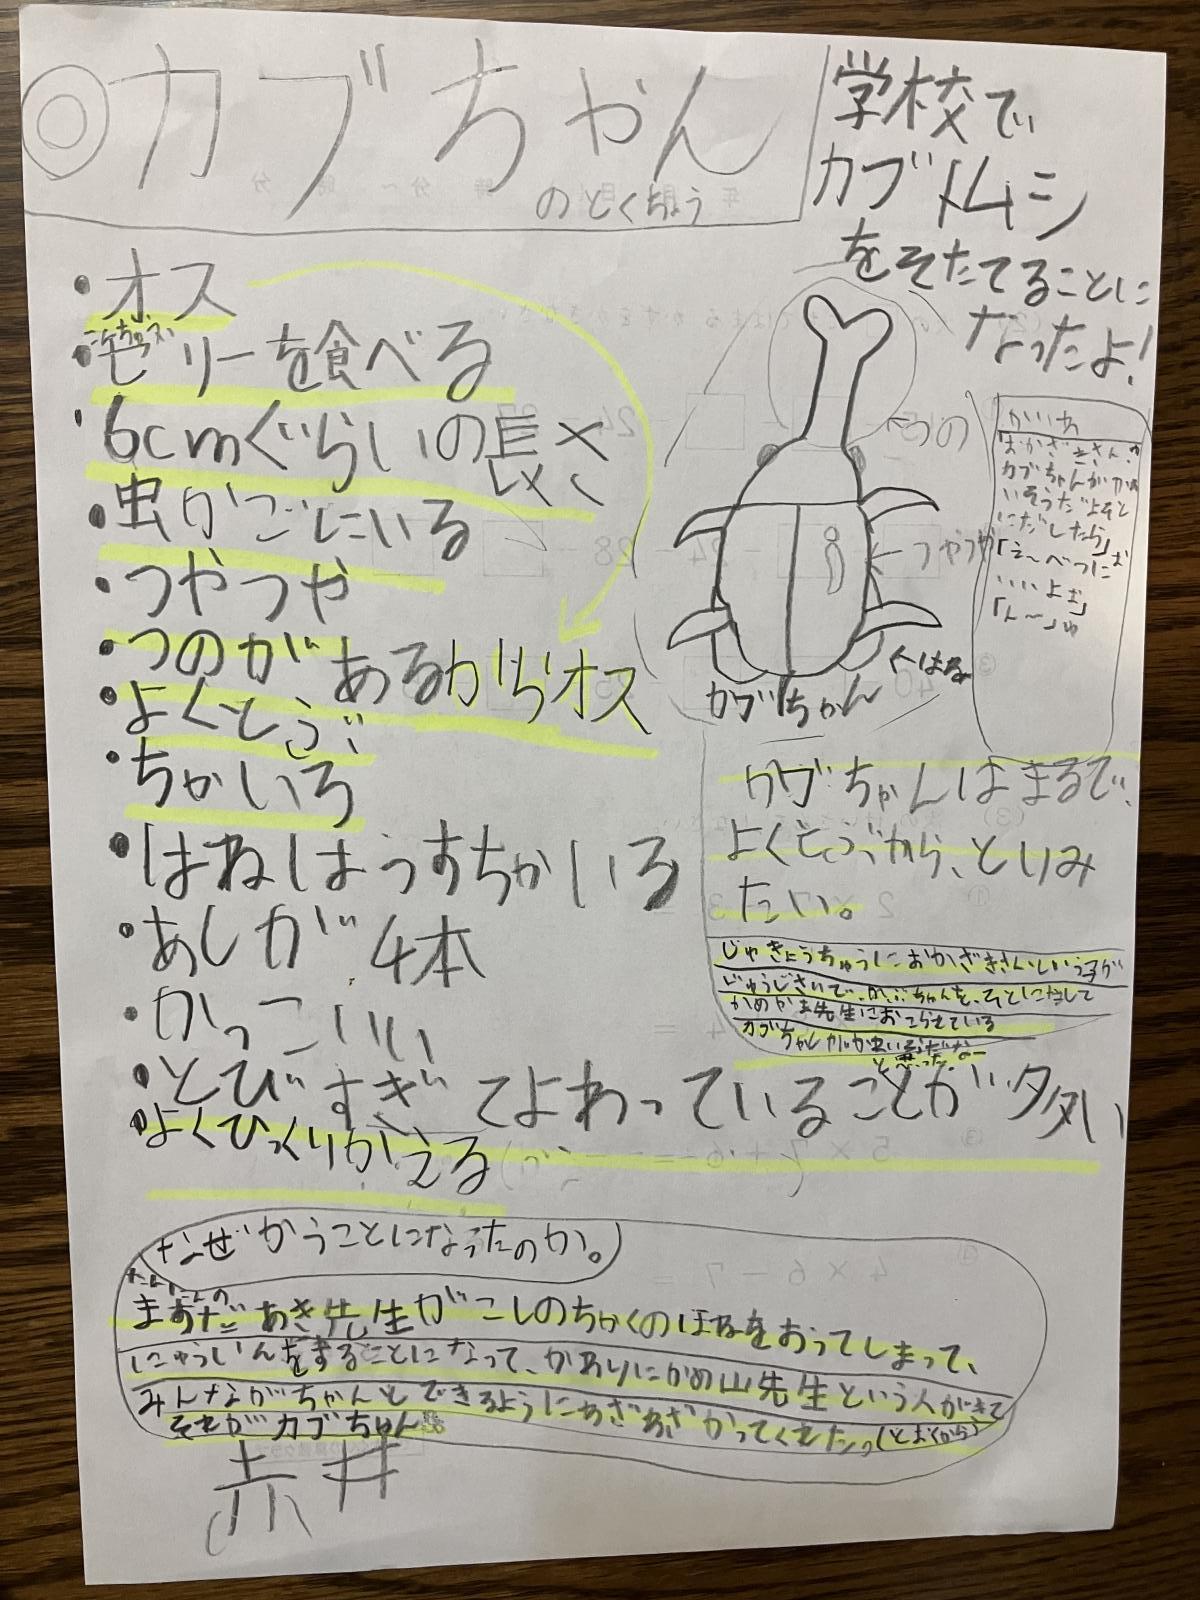 ◎カブちゃん
のとくちょう
学校で
カブトムシ
をそだてることに
なったよ!
・オス
こんちゅう
・ゼリーを食べる
・6cmぐらいの長さ
・虫かごにいる
・つやつや
・つのがあるからオス
・よくとぶ
・ちゃいろ
・はねはうすちゃいろ
・あしが4本
・かっこいい
・とびすぎてよわっていることが多い
・よくひっくりかえる
←つの
←つやつや
←はね
カブちゃん
かいわ
おかざきさん
カブちゃんがかわ
いそうだよそと
にだしたら」
「え〜べつにお
いいよぉ」
「ん〜」
カブちゃんはまるで、
よくとぶから、とりみ
たい。
じゅぎょうちゅうにおかざきさんという子が
じゅうじさいで、かぶちゃんを、そとにだして
かめやま先生におこられている
カブちゃんがかわいそうだなー
と思った。
なぜかうことになったのか。
たんにんの
まえだあき先生がこしのちかくのほねをおってしまって、
にゅういんをすることになって、かわりにかめ山先生という人がきて
みんながちゃんとできるようにわざわざかってくれた。(とおくから)
それがカブちゃん